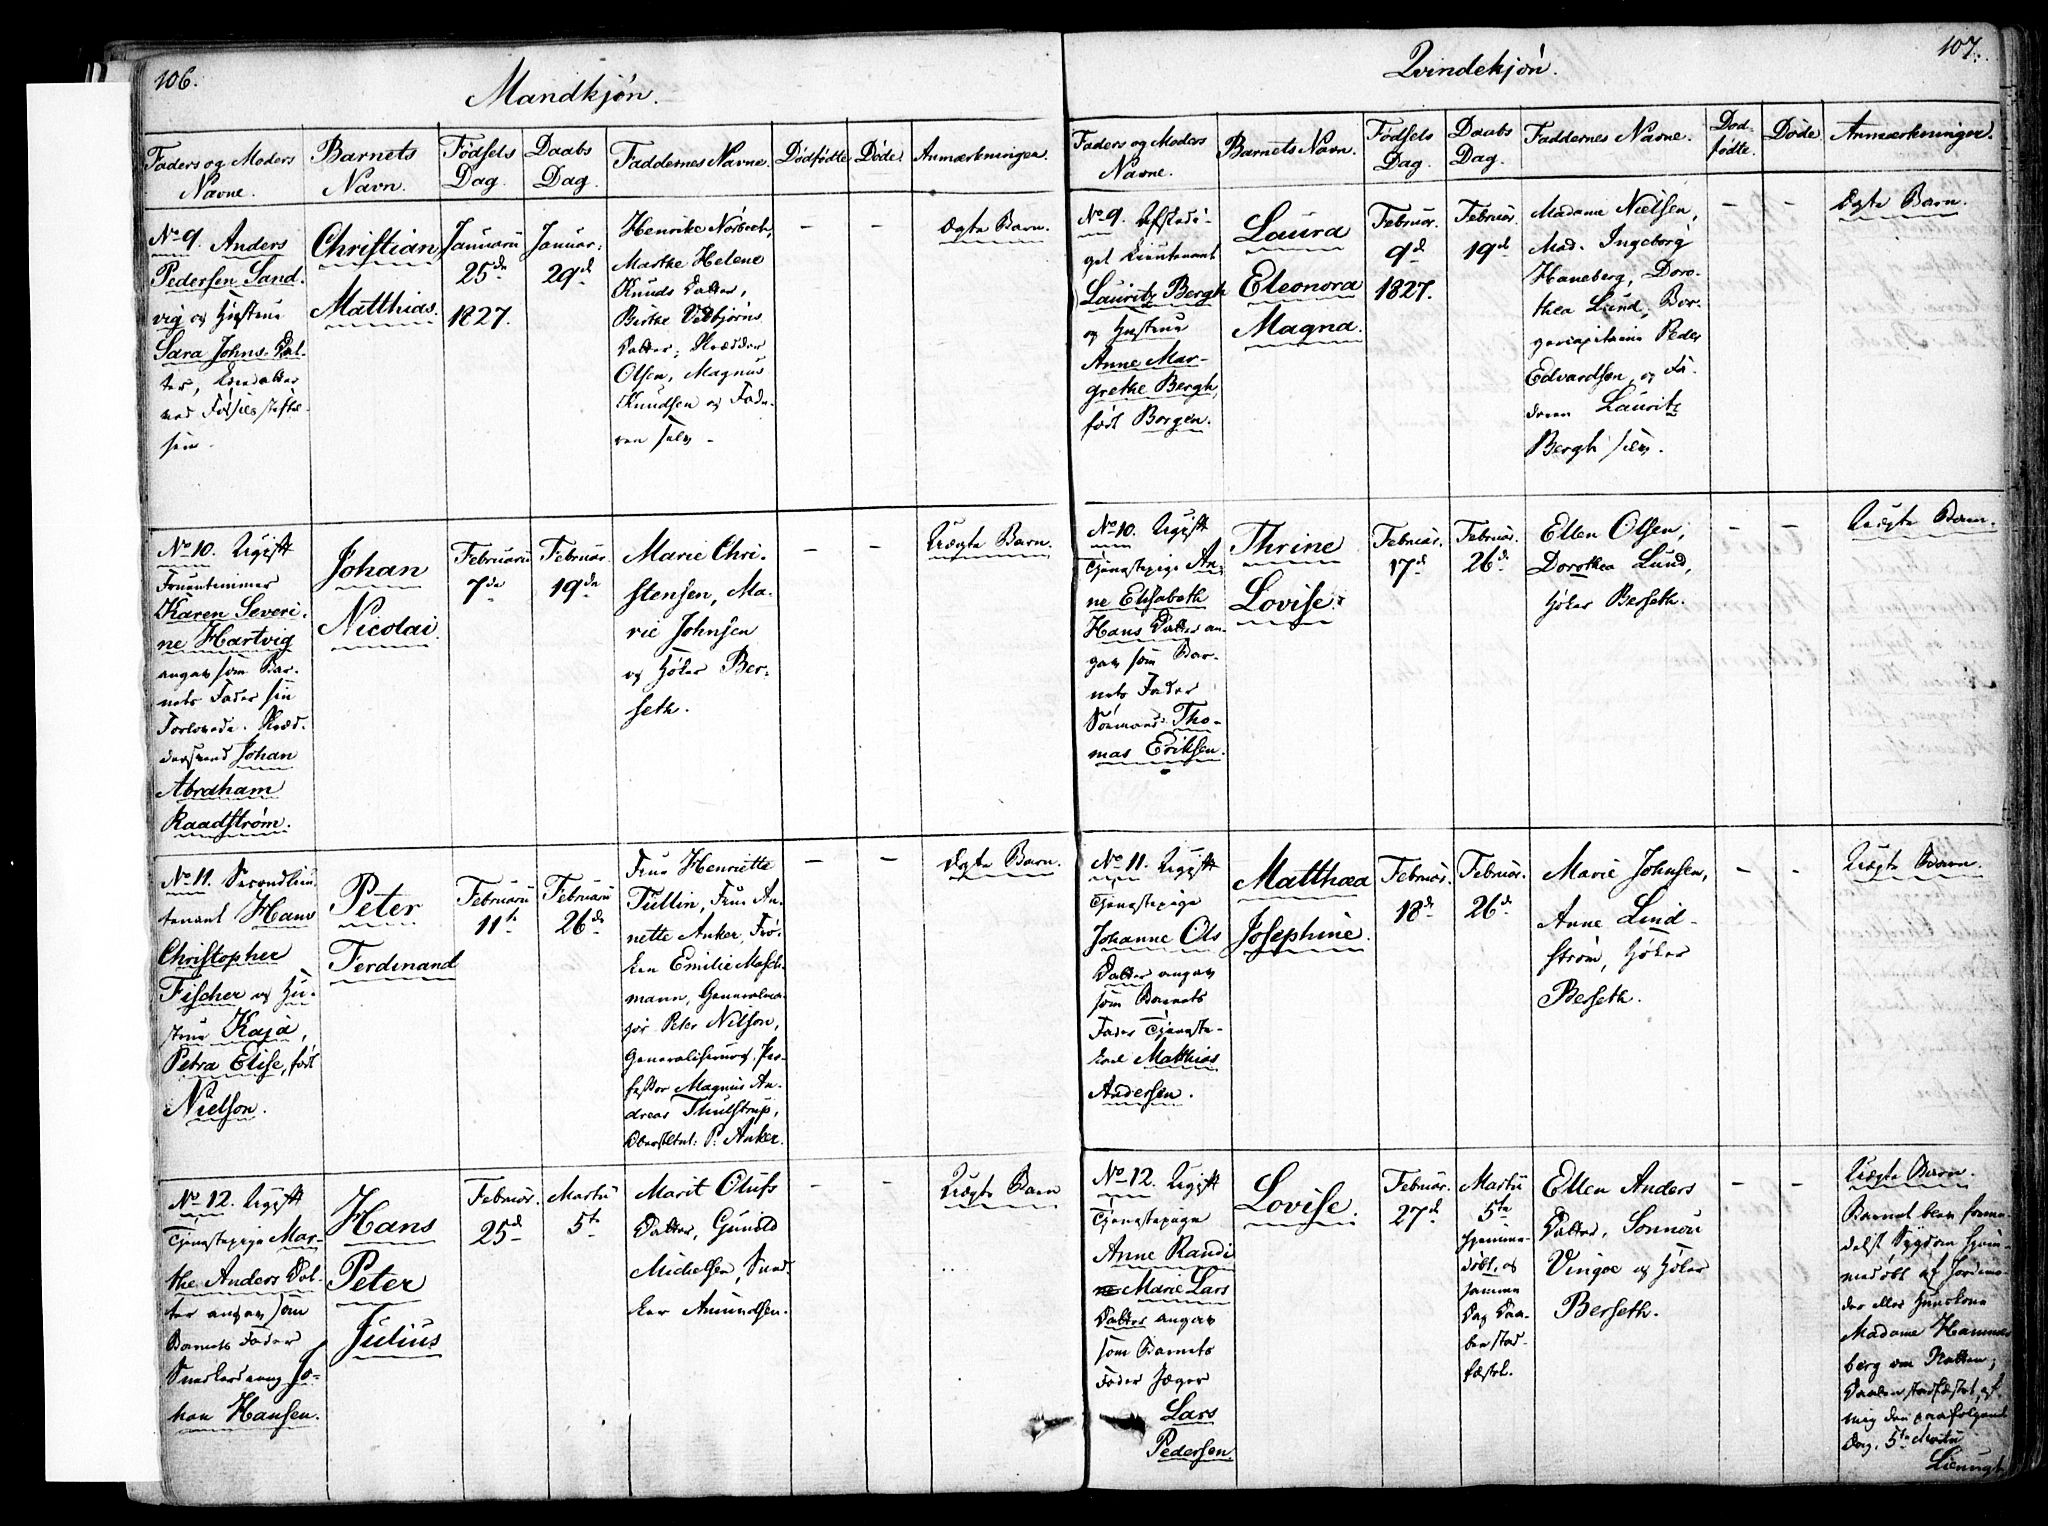 106.
Mandkjøn.
Faders og Moders
Navne.
Barnets
Navn.
Fødsels
Dag.
Daabs
Dag.
Faddernes Navne.
Dødfødte
Døde.
Anmærkninger.
No 9. Anders
Pedersen Sand-
vig og Hustrue
Sara Johns-Dat-
ter,
sen.
Christian
Matthias.
Januarii
25de
1827.
Januar:
29de
Henrike Norbech,
Marthe Helene
Knuds Datter,
Berthe Vebjørns
Datter, Skrædder
Olsen, Magnus
Knudsen og Fade-
ren selv -
-
-
Ægte Barn.
No 10. Ugift
Fruentimmer
Karen Severi-
ne Hartvig
angav som Bar-
nets Fader sin
Forlovede, Skræd-
dersvend Johan
Abraham
Raadstrøm.
Johan
Nicolai.
Februarii
7de
Februar.
19de
Marie Chri-
stensen, Ma-
rie Johnsen
og Høker Ber-
seth.
-
-
Uægte Barn.
No 11. Secondlieu-
tenant Hans
Christopher
Fischer og Hu-
strue Kaja,
Petra Elise, født
Nielson.
Peter
Ferdinand
Februarii
11te
Februarii
26de
Frue Henriette
Tullin, Frue An-
nette Anker, Frø-
ken Emilie Masch-
mann, Generalma-
jor Peter Nilson,
Generalchirurg, Pro-
fessor Magnus An-
dreas Thulstrup,
Oberstltnt: P. Anker.
-
-
Ægte Barn.
No 12. Ugift
Tjenestepige Mar-
the Anders Dat-
ter angav som
Barnets Fader
Snedkersvend Jo-
han Hansen.
Hans
Peter
Julius
Februar.
25de
Martii
5te
Marit Olufs
Datter, Gunild
Michelsen, Sned-
ker Amundsen.
-
-
Uægte Barn
107.
Qvindekjøn.
Faders og Moders
Navne.
Barnets Navn.
Fødsels
Dag.
Daabs
Dag.
Faddernes Navne.
Død-
fødte.
Døde
Anmærkninger.
No 9. Afskedi-
get Lieutenant
Lauritz Bergh
og Hustrue
Anne Mar-
grethe Bergh,
født Borgen.
Laura
Eleonora
Magna.
Februar.
9de
1827.
Februar.
19de
Madame Nielsen,
Mad. Ingeborg
Haneberg, Doro-
thea Lund, Bor-
gercapitaine Peder
Edvardsen, og Fa-
deren Lauritz
Bergh selv.
-
-
Ægte Barn.
No 10. Ugift
Tjenestepige An-
ne Elisabeth
Hans Datter an-
gav som Bar-
nets Fader
Sømand Tho-
mas Eriksen.
Thrine
Lovise.
Februar.
17de
Februar.
26de
Ellen Olsen,
Dorothea Lund,
Høker Berseth.
-
-
Uægte Barn.
No 11. Ugift
Tjenestepige
Johanne Ols
Datter angav
som Barnets
Fader Tjeneste-
karl Matthias
Andersen.
Matthæa
Josephine.
Februar.
18de
Februar.
26de
Marie Johnsen,
Anne Lind-
strøm, Høker
Berseth.
-
-
Uægte Barn.
No 12. Ugift
Tjenestepige
Anne Randi
Marie Lars
Datter angav
som Barnets
Fader Jæger
Lars
Pedersen.
Lovise.
Februar.
27de
Martii
5te
hjemme-
døbt, og
samme
Dag Daa-
ben stad-
fæstet.
Ellen Anders
Datter, Sonnov
Vingoe og Høker
Berseth.
-
-
Uægte Barn.
Barnet blev forme-
delst Sygdom hjem-
medøbt af Jordemo-
der
Madame Hammer-
berg om Natten,
Daaben stadfæstet af
mig den paafølgende
Dag, 5te Martii